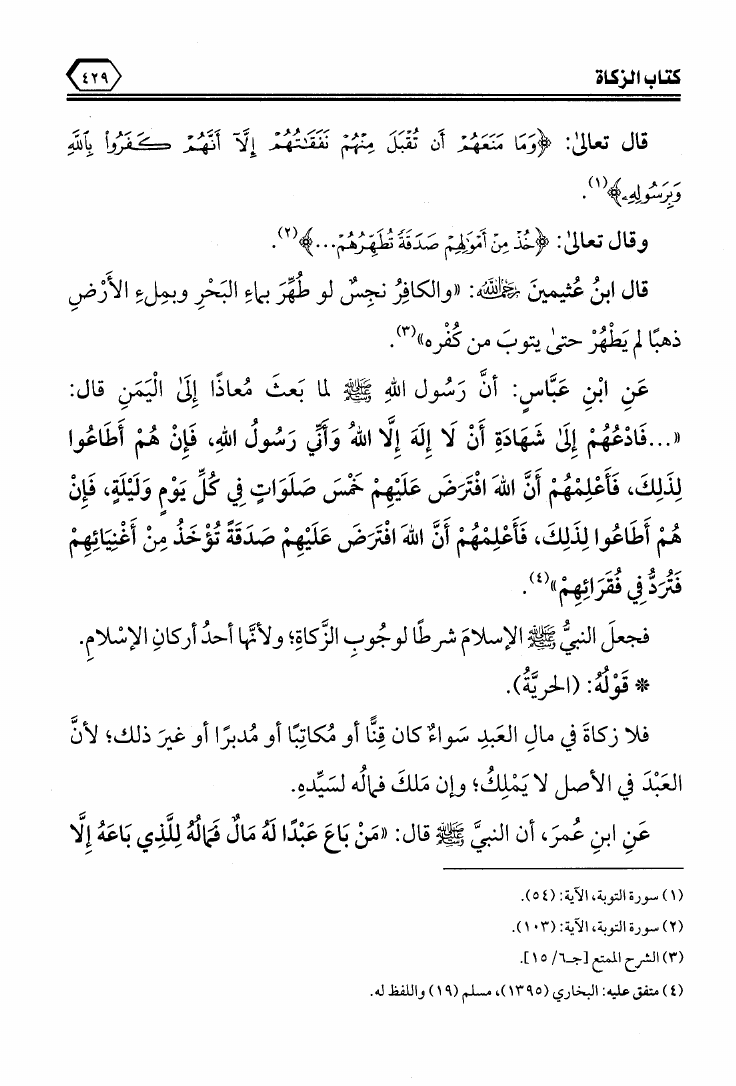 كتاب الزكاة
٤٢٩
قال تعالىٰ: ﴿وَمَا مَنَعَهُمْ أَن تُقْبَلَ مِنْهُمْ نَفَقَٰتُهُمْ إِلَّآ أَنَّهُمْ كَفَرُوا۟ بِٱللَّهِ
وَبِرَسُولِهِۦ﴾(١).
وقال تعالىٰ: ﴿خُذْ مِنْ أَمْوَٰلِهِمْ صَدَقَةً تُطَهِّرُهُمْ...﴾(٢).
قال ابنُ عُثيمينَ رحمه الله: «والكافِرُ نجِسٌ لو طُهِّرَ بماءِ البَحْرِ وبمِلءِ الأَرْضِ
ذهبًا لم يَطْهُرْ حتىٰ يتوبَ من كُفْره»(٣).
عَنِ ابْنِ عَبَّاسٍ: أنَّ رَسُول اللهِ ﷺ لما بَعثَ مُعاذًا إِلَىٰ الْيَمَنِ قال:
«...فَادْعُهُمْ إِلَىٰ شَهَادَةِ أَنْ لَا إِلَهَ إِلَّا اللهُ وَأَنِّي رَسُولُ اللهِ، فَإِنْ هُمْ أَطَاعُوا
لِذَلِكَ، فَأَعْلِمْهُمْ أَنَّ اللهَ افْتَرَضَ عَلَيْهِمْ خَمْسَ صَلَوَاتٍ فِي كُلِّ يَوْمٍ وَلَيْلَةٍ، فَإِنْ
هُمْ أَطَاعُوا لِذَلِكَ، فَأَعْلِمْهُمْ أَنَّ اللهَ افْتَرَضَ عَلَيْهِمْ صَدَقَةً تُؤْخَذُ مِنْ أَغْنِيَائِهِمْ
فَتُرَدُّ فِي فُقَرَائِهِمْ»(٤).
فجعلَ النبيُّ ﷺ الإسلامَ شرطًا لوجُوبِ الزَّكاةِ؛ ولأنَّها أحدُ أركانِ الإسْلامِ.
* قَوْلُهُ: (الحريَّةُ).
فلا زكاةَ في مالِ العَبدِ سَواءٌ كان قِنًّا أو مُكاتِبًا أو مُدبرًا أو غيرَ ذلك؛ لأنَّ
العَبْدَ في الأصل لا يَمْلِكُ؛ وإن مَلكَ فمالُه لسَيِّدهِ.
عَنِ ابنِ عُمرَ، أن النبيَّ ﷺ قال: «مَنْ بَاعَ عَبْدًا لَهُ مَالٌ فَمَالُهُ لِلَّذِي بَاعَهُ إِلَّا
(١) سورة التوبة، الآية: (٥٤).
(٢) سورة التوبة، الآية: (١٠٣).
(٣) الشرح الممتع [جـ٦/ ١٥].
(٤) متفق عليه: البخاري (١٣٩٥)، مسلم (١٩) واللفظ له.